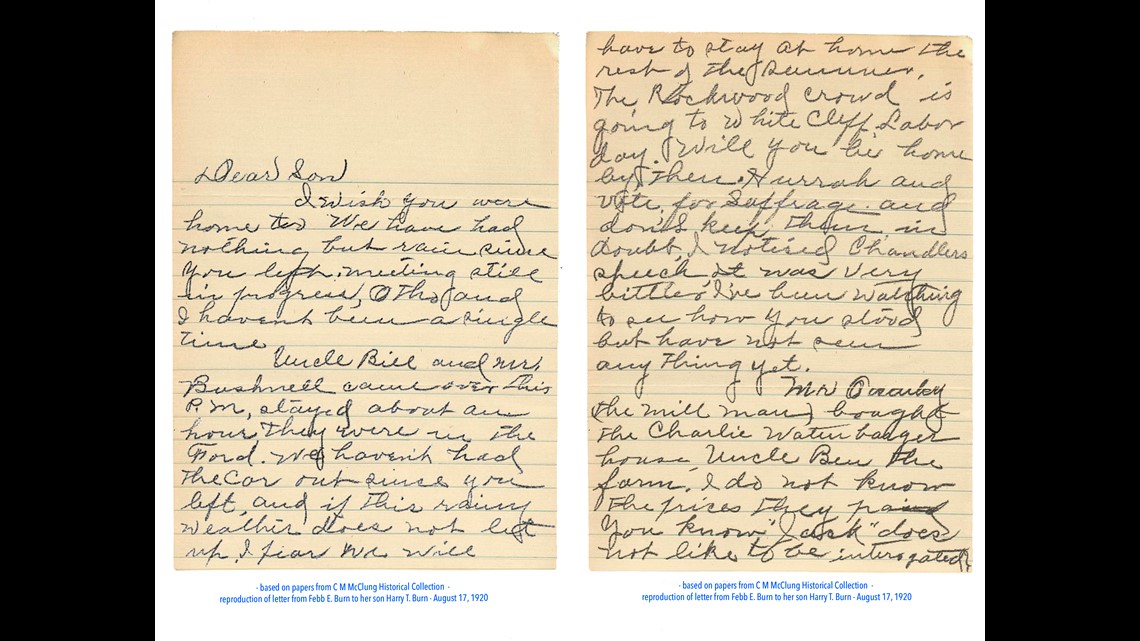 Dear Son
I wish you were
home too We have had
nothing but rain since
you left. meeting still
in progress, Otho and
I havent been a single
time
Uncle Bill and Mr.
Bushnell came over this
P.M, stayed about an
hour They were in the
Ford. We havent had
the car out since you
left, and if this rainy
weather does not let
up, I fear we will
- based on papers from C M McClung Historical Collection -
reproduction of letter from Febb E. Burn to her son Harry T. Burn - August 17, 1920
have to stay at home the
rest of the summer.
The Rockwood crowd is
going to White Cliff Labor
day. Will you be home
by then. Hurrah and
vote for Suffrage and
don't keep them in
doubt, I notised Chandlers
speech, it was very
bitter, I've been watching
to see how you stood
but have not seen
any thing yet.
Mr.
(the mill man) bought
the Charlie
house Uncle Ben the
farm. I do not know
the prices they paid
You know "Jack" does
not like to be interogated.
- based on papers from C M McClung Historical Collection -
reproduction of letter from Febb E. Burn to her son Harry T. Burn - August 17, 1920